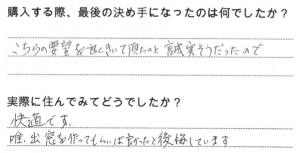 購入する際、最後の決め手になったのは何でしたか？
こちらの要望を良くきいて頂たのと誠実そうだったので
実際に住んでみてどうでしたか？
快適です。
唯、出窓を作ってもらいば良かったと後悔しています